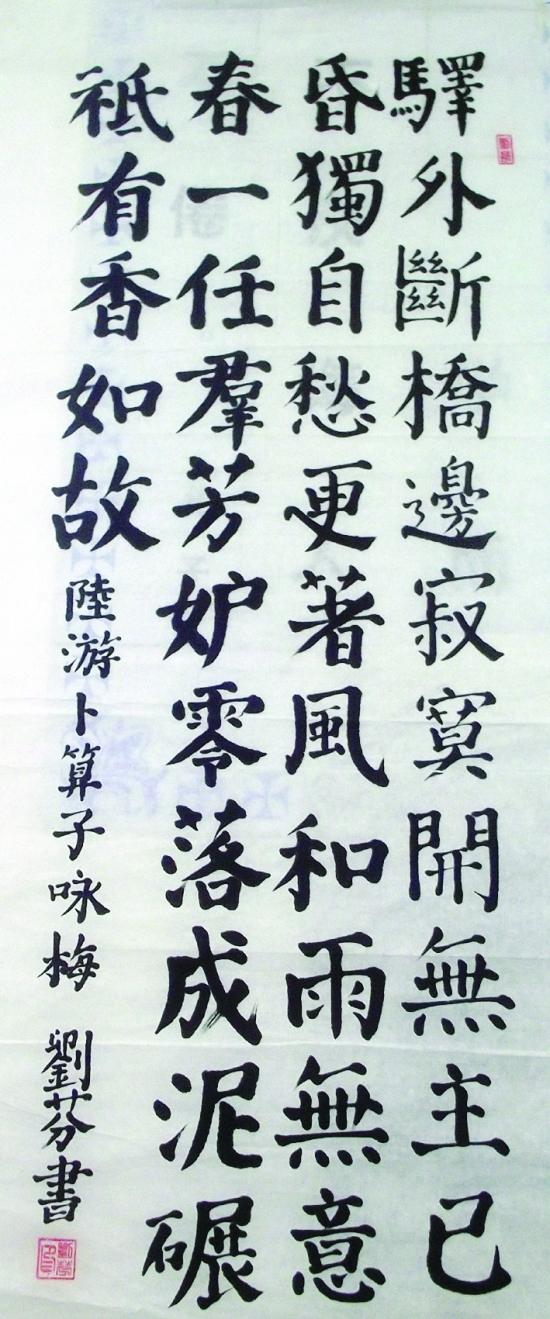 驛外斷橋邊寂寞開無主已
昏獨自愁更著風和雨無意
春一任羣芳妒零落成泥碾
祗有香如故 陸游卜算子咏梅 劉芬書